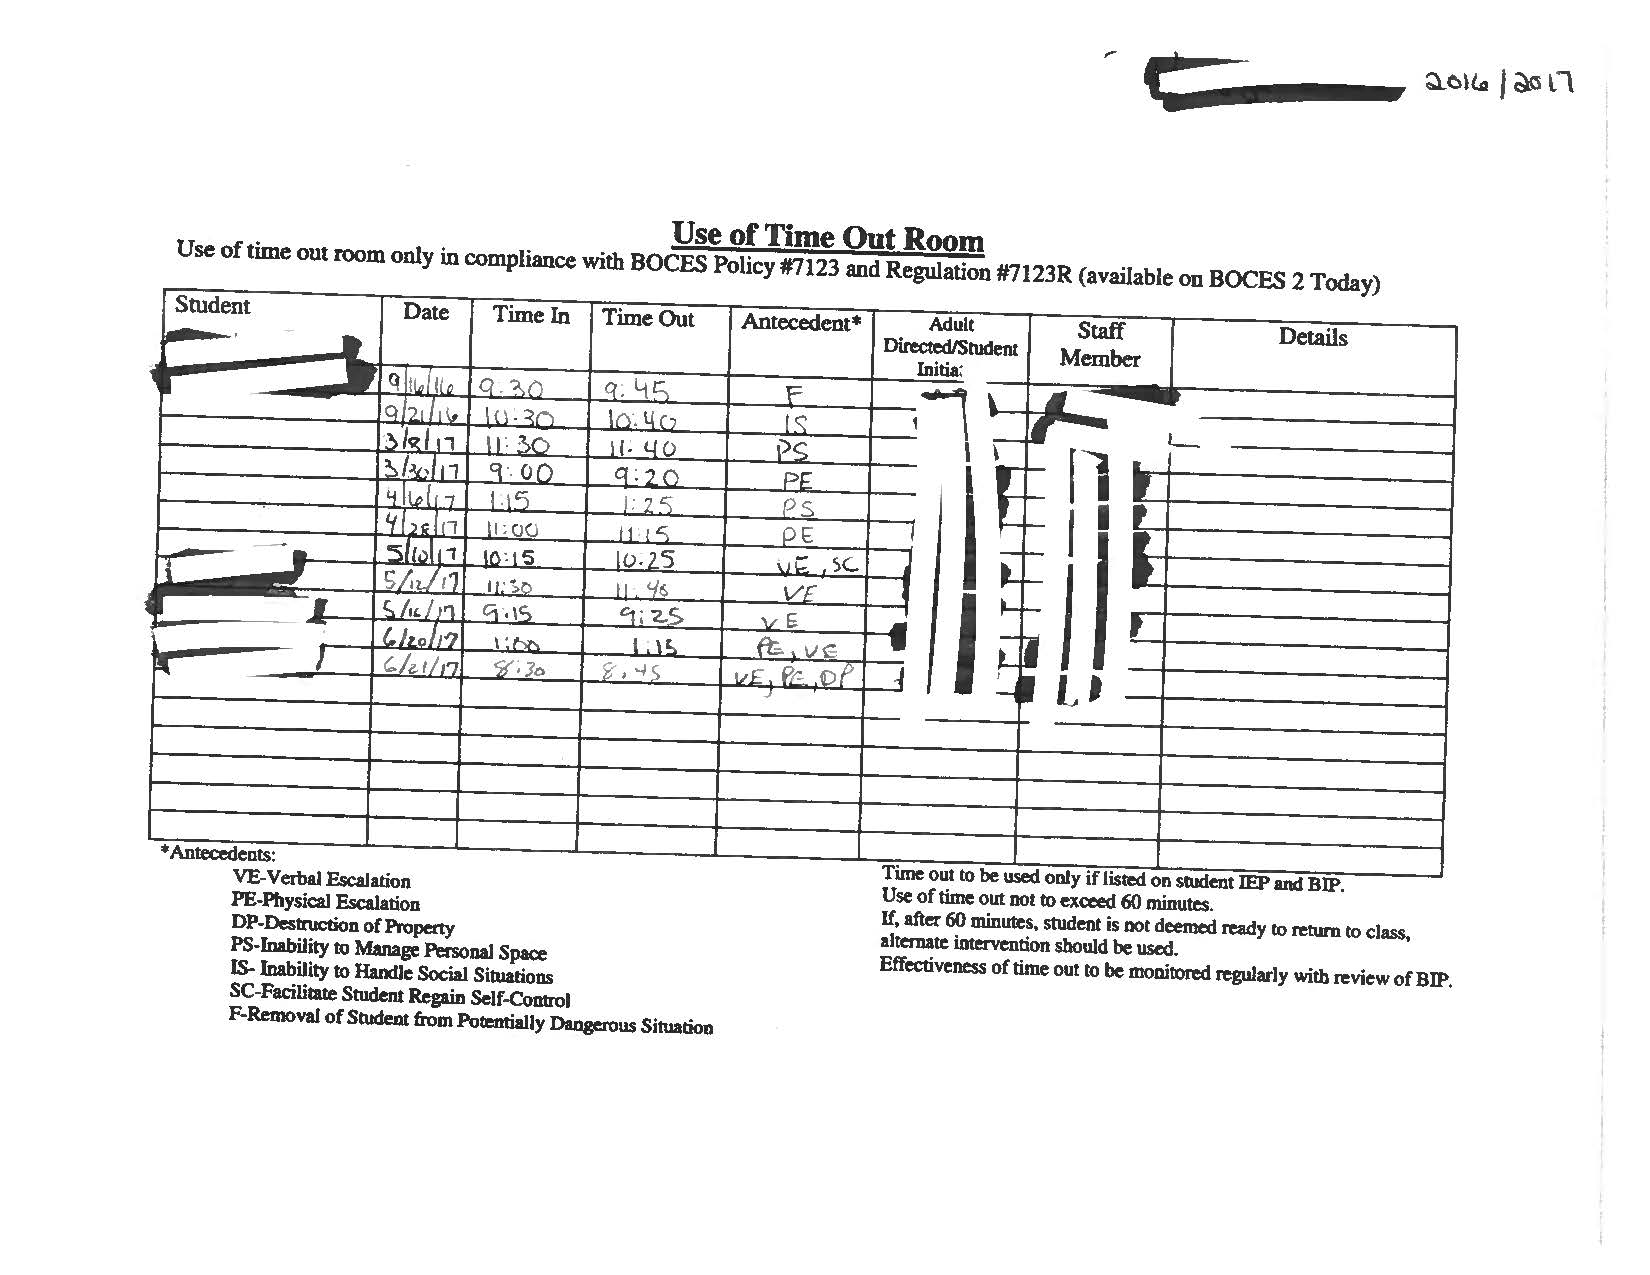 2016/2017
Use of Time Out Room
Use of time out room only in compliance with BOCES Policy #7123 and Regulation #7123R (available on BOCES 2 Today)
Student Date Time In Time Out Antecedent* Adult Directed/Student Staff Member Details
9/16/16 9:30 9:45 F
9/21/16 10:30 10:40 IS
3/8/17 11:30 11:40 PS
3/30/17 9:00 9:20 PE
4/6/17 1:15 1:25 PS
4/28/17 11:00 11:15 PE
5/10/17 10:15 10:25 VE, SC
5/12/17 11:30 11:40 VE
5/16/17 9:15 9:25 VE
6/20/17 1:00 1:15 PE, VE
6/21/17 8:30 8:45 VE, PE, DP
*Antecedents:
VE-Verbal Escalation
PE-Physical Escalation
DP-Destruction of Property
PS-Inability to Manage Personal Space
IS- Inability to Handle Social Situations
SC-Facilitate Student Regain Self-Control
F-Removal of Student from Potentially Dangerous Situation
Time out to be used only if listed on student IEP and BIP.
Use of time out not to exceed 60 minutes.
If, after 60 minutes, student is not deemed ready to return to class,
alternate intervention should be used.
Effectiveness of time out to be monitored regularly with review of BIP.